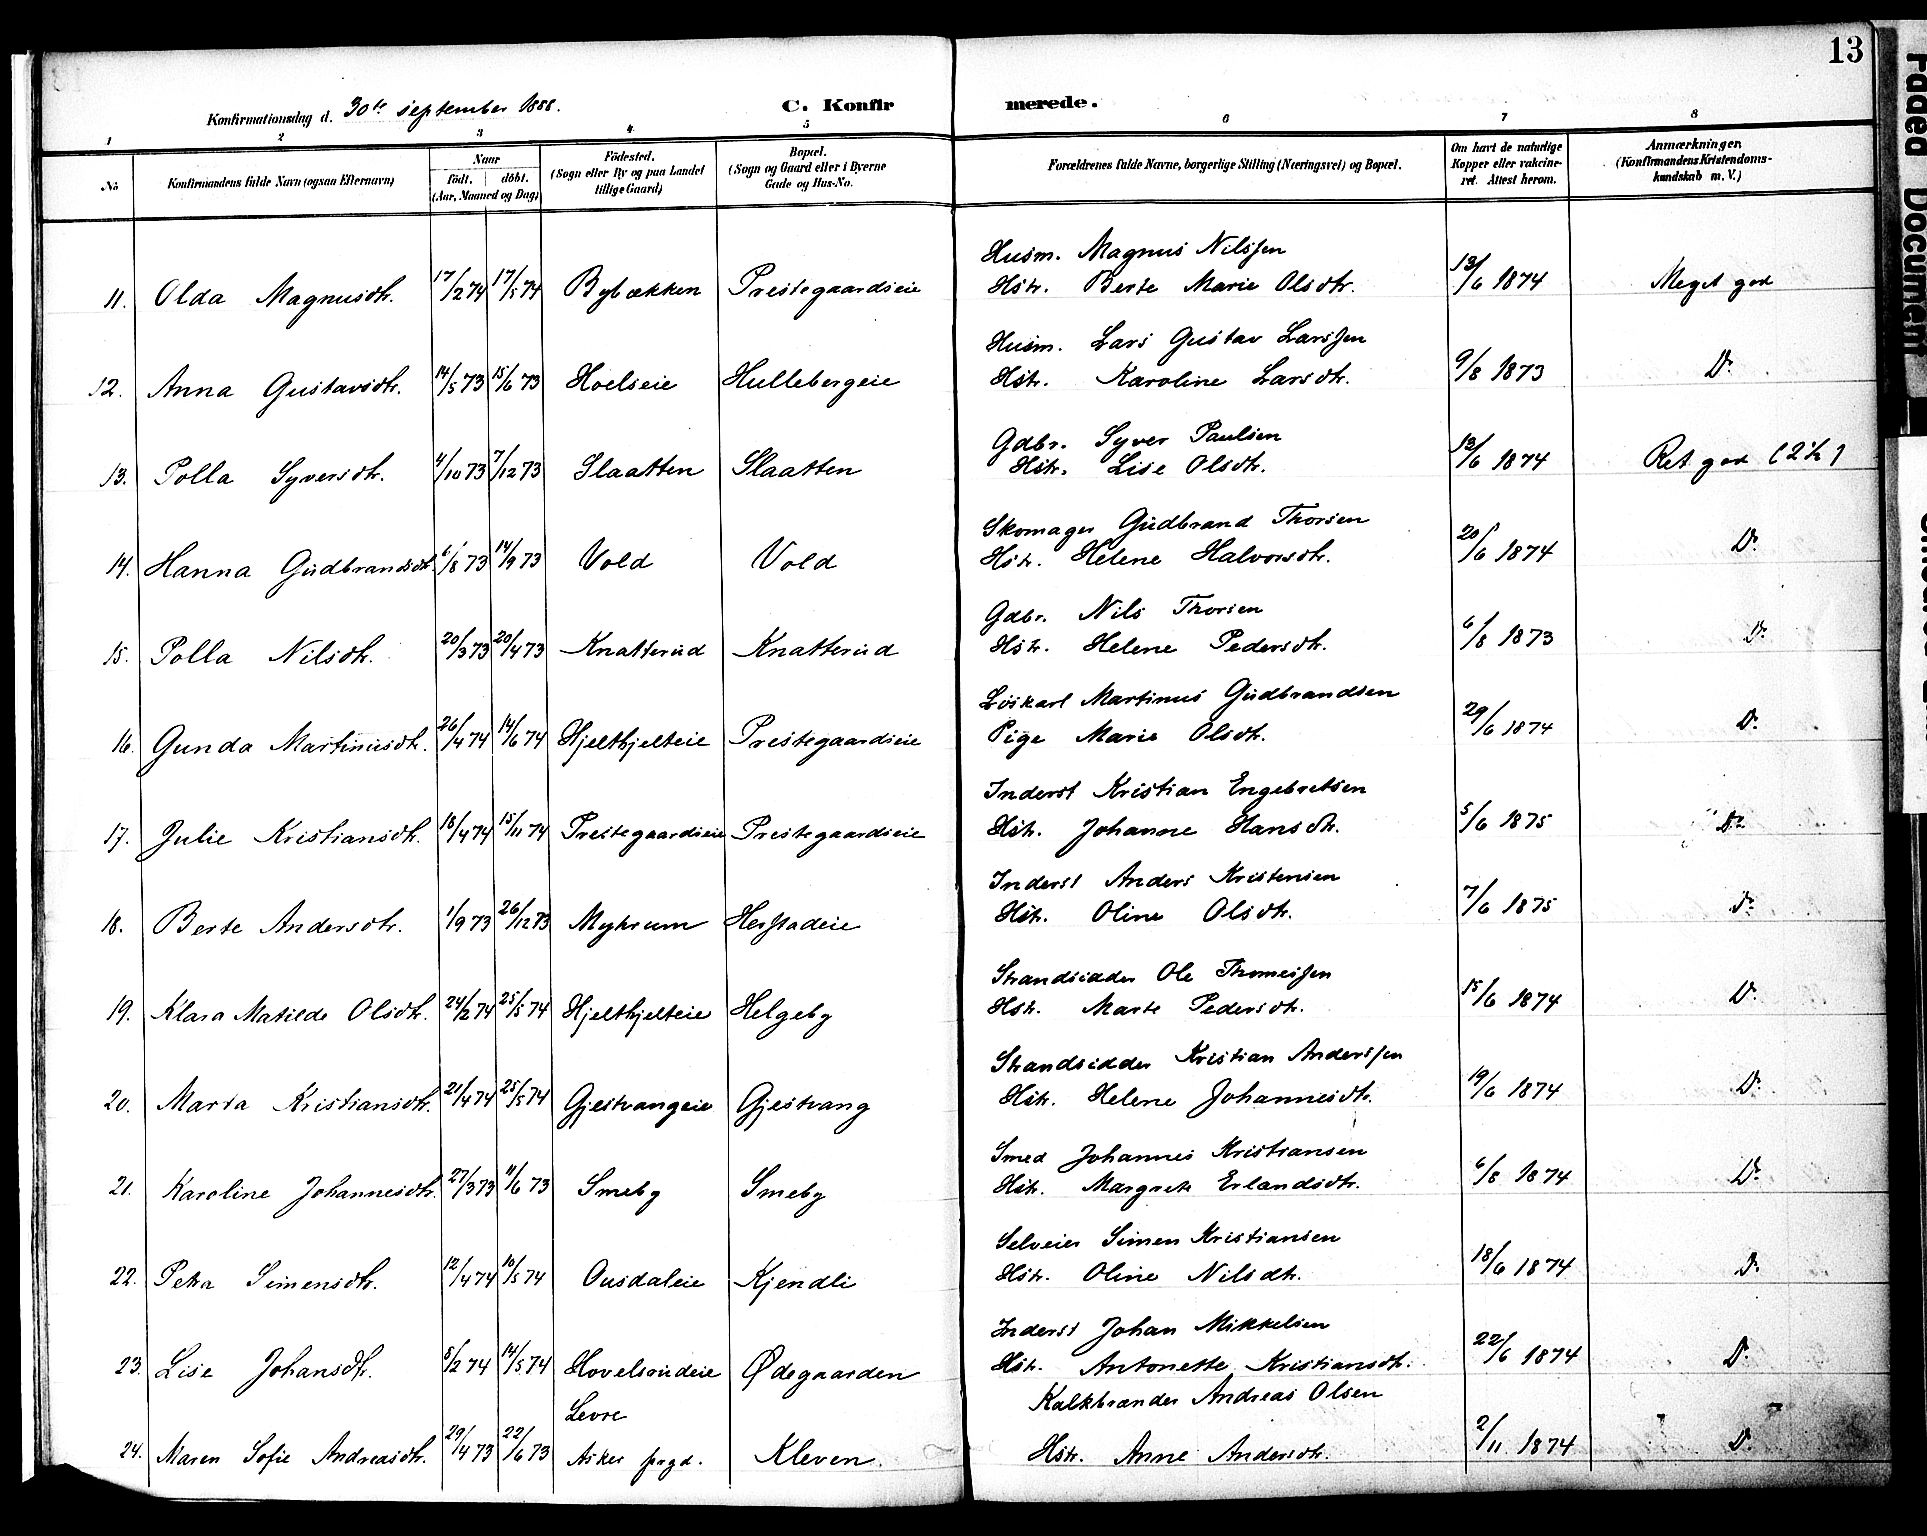 13
Konfirmationsdag d. 30te september 1888.
C. Konfirmerede.
1 2 3 4 5 6 7 8
No
Konfirmandens fulde Navn (ogsaa Efternavn)
Naar
født. døbt.
(Aar, Maaned og Dag)
Fødested.
(Sogn eller By og paa Landet
tillige Gaard)
Bopæl.
(Sogn og Gaard eller i Byerne
Gade og Hus-No.
Forældrenes fulde Navne, borgerlige Stilling (Næringsvei) og Bopæl.
Om havt de naturlige
Kopper eller vakcine-
ret. Attest herom.
Anmærkninger.
(Konfirmandens Kristendoms-
kundskab m. V.)
Husm. Magnus Nilssen
11. Olda Magnusdtr. 17/2 74 17/5 74 Bybækken Prestegaardseie Hstr. Berte Marie Olsdtr. 13/6 1874 Meget god
Husm. Lars Gustav Larssen
12. Anna Gustavsdtr. 14/5 73 15/6 73 Hoelseie Hullebergeie Hstr. Karoline Larsdtr. 9/8 1873 Do
Gdbr. Syver Paulsen
13. Polla Syversdtr. 4/10 73 7/12 73 Slaatten Slaatten Hstr. Lise Olsdtr. 13/6 1874 Ret god (2½)
Skomager Gudbrand Thorsen
14. Hanna Gudbrandsdtr. 6/8 73 14/9 73 Vold Vold Hstr. Helene Halvorsdtr. 20/6 1874 Do
Gdbr. Nils Thorsen
15. Polla Nilsdtr. 20/3 73 20/4 73 Knatterud Knatterud Hstr. Helene Pedersdtr. 6/8 1873 Do
Løskarl Martinus Gudbrandsen
16. Gunda Martinusdtr. 26/4 74 14/6 74 Hjelthjelteie Prestegaardseie Pige Marie Olsdtr. 29/6 1874 Do
Inderst Kristian Engebretsen
17. Julie Kristiansdtr. 18/4 74 15/11 74 Prestegaardseie Prestegaardseie Hstr. Johanne Hansdtr. 5/6 1875 Do
Inderst Anders Kristensen
18. Berte Andersdtr. 1/9 73 26/12 73 Myhrum Herstadeie Hstr. Oline Olsdtr. 7/6 1875 Do
Strandsidder Ole Thomessen
19. Klara Matilde Olsdtr. 24/2 74 25/5 74 Hjelthjelteie Helgeby Hstr. Marte Pedersdtr. 15/6 1874 Do
Strandsidder Kristian Anderssen
20. Marta Kristiansdtr. 21/4 74 25/5 74 Gjestvangeie Gjestvang Hstr. Helene Johannesdtr. 19/6 1874 Do
Smed Johannes Kristiansen
21. Karoline Johannesdtr. 27/3 73 11/6 73 Smeby Smeby Hstr. Margrete Erlandsdtr. 6/8 1874 Do
Selveier Simen Kristiansen
22. Petra Simensdtr. 12/4 74 10/5 74 Ousdaleie Kjendli Hstr. Oline Nilsdtr. 18/6 1874 Do
Inderst Johan Mikkelsen
23. Lise Johansdtr. 5/2 74 14/5 74 Hovelsrudeie Ødegaarden Hstr. Antonette Kristiansdtr. 22/6 1874 Do
Levre Kalkbrænder Andreas Olsen
24. Maren Sofie Andreasdtr. 29/4 73 22/6 73 Asker prgd. Kleven. Hstr. Anne Andersdtr. 2/11 1874 Do